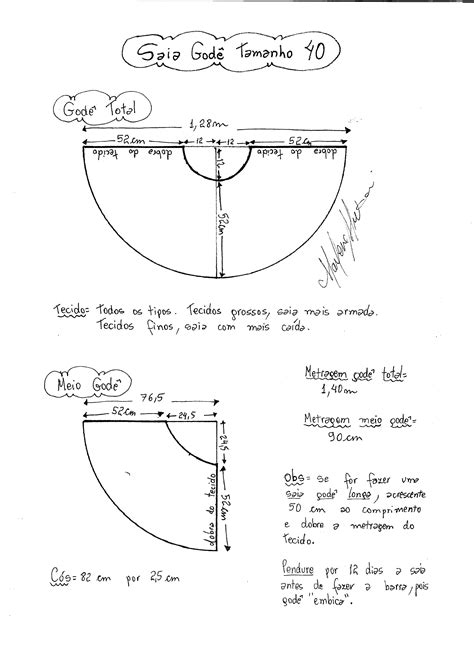 Saia Godê Tamanho 40
Godê Total
1,28m
52cm 12 12 52cm
dobra do tecido dobra do tecido
12
52cm
Marlene Mukai
Tecido= Todos os tipos. Tecidos grossos, saia mais armada.
Tecidos finos, saia com mais caída.
Meio Godê
76,5
52cm 24,5
24,5
52cm
dobra do tecido
Cós= 82 cm por 2,5 cm
Metragem godê total=
1,40m
Metragem meio godê=
90 cm
Obs= se for fazer uma
saia godê longa, acrescente
50 cm ao comprimento
e dobre a metragem do
tecido.
Pendure por 12 dias a saia
antes de fazer a barra, pois
godê "embica".